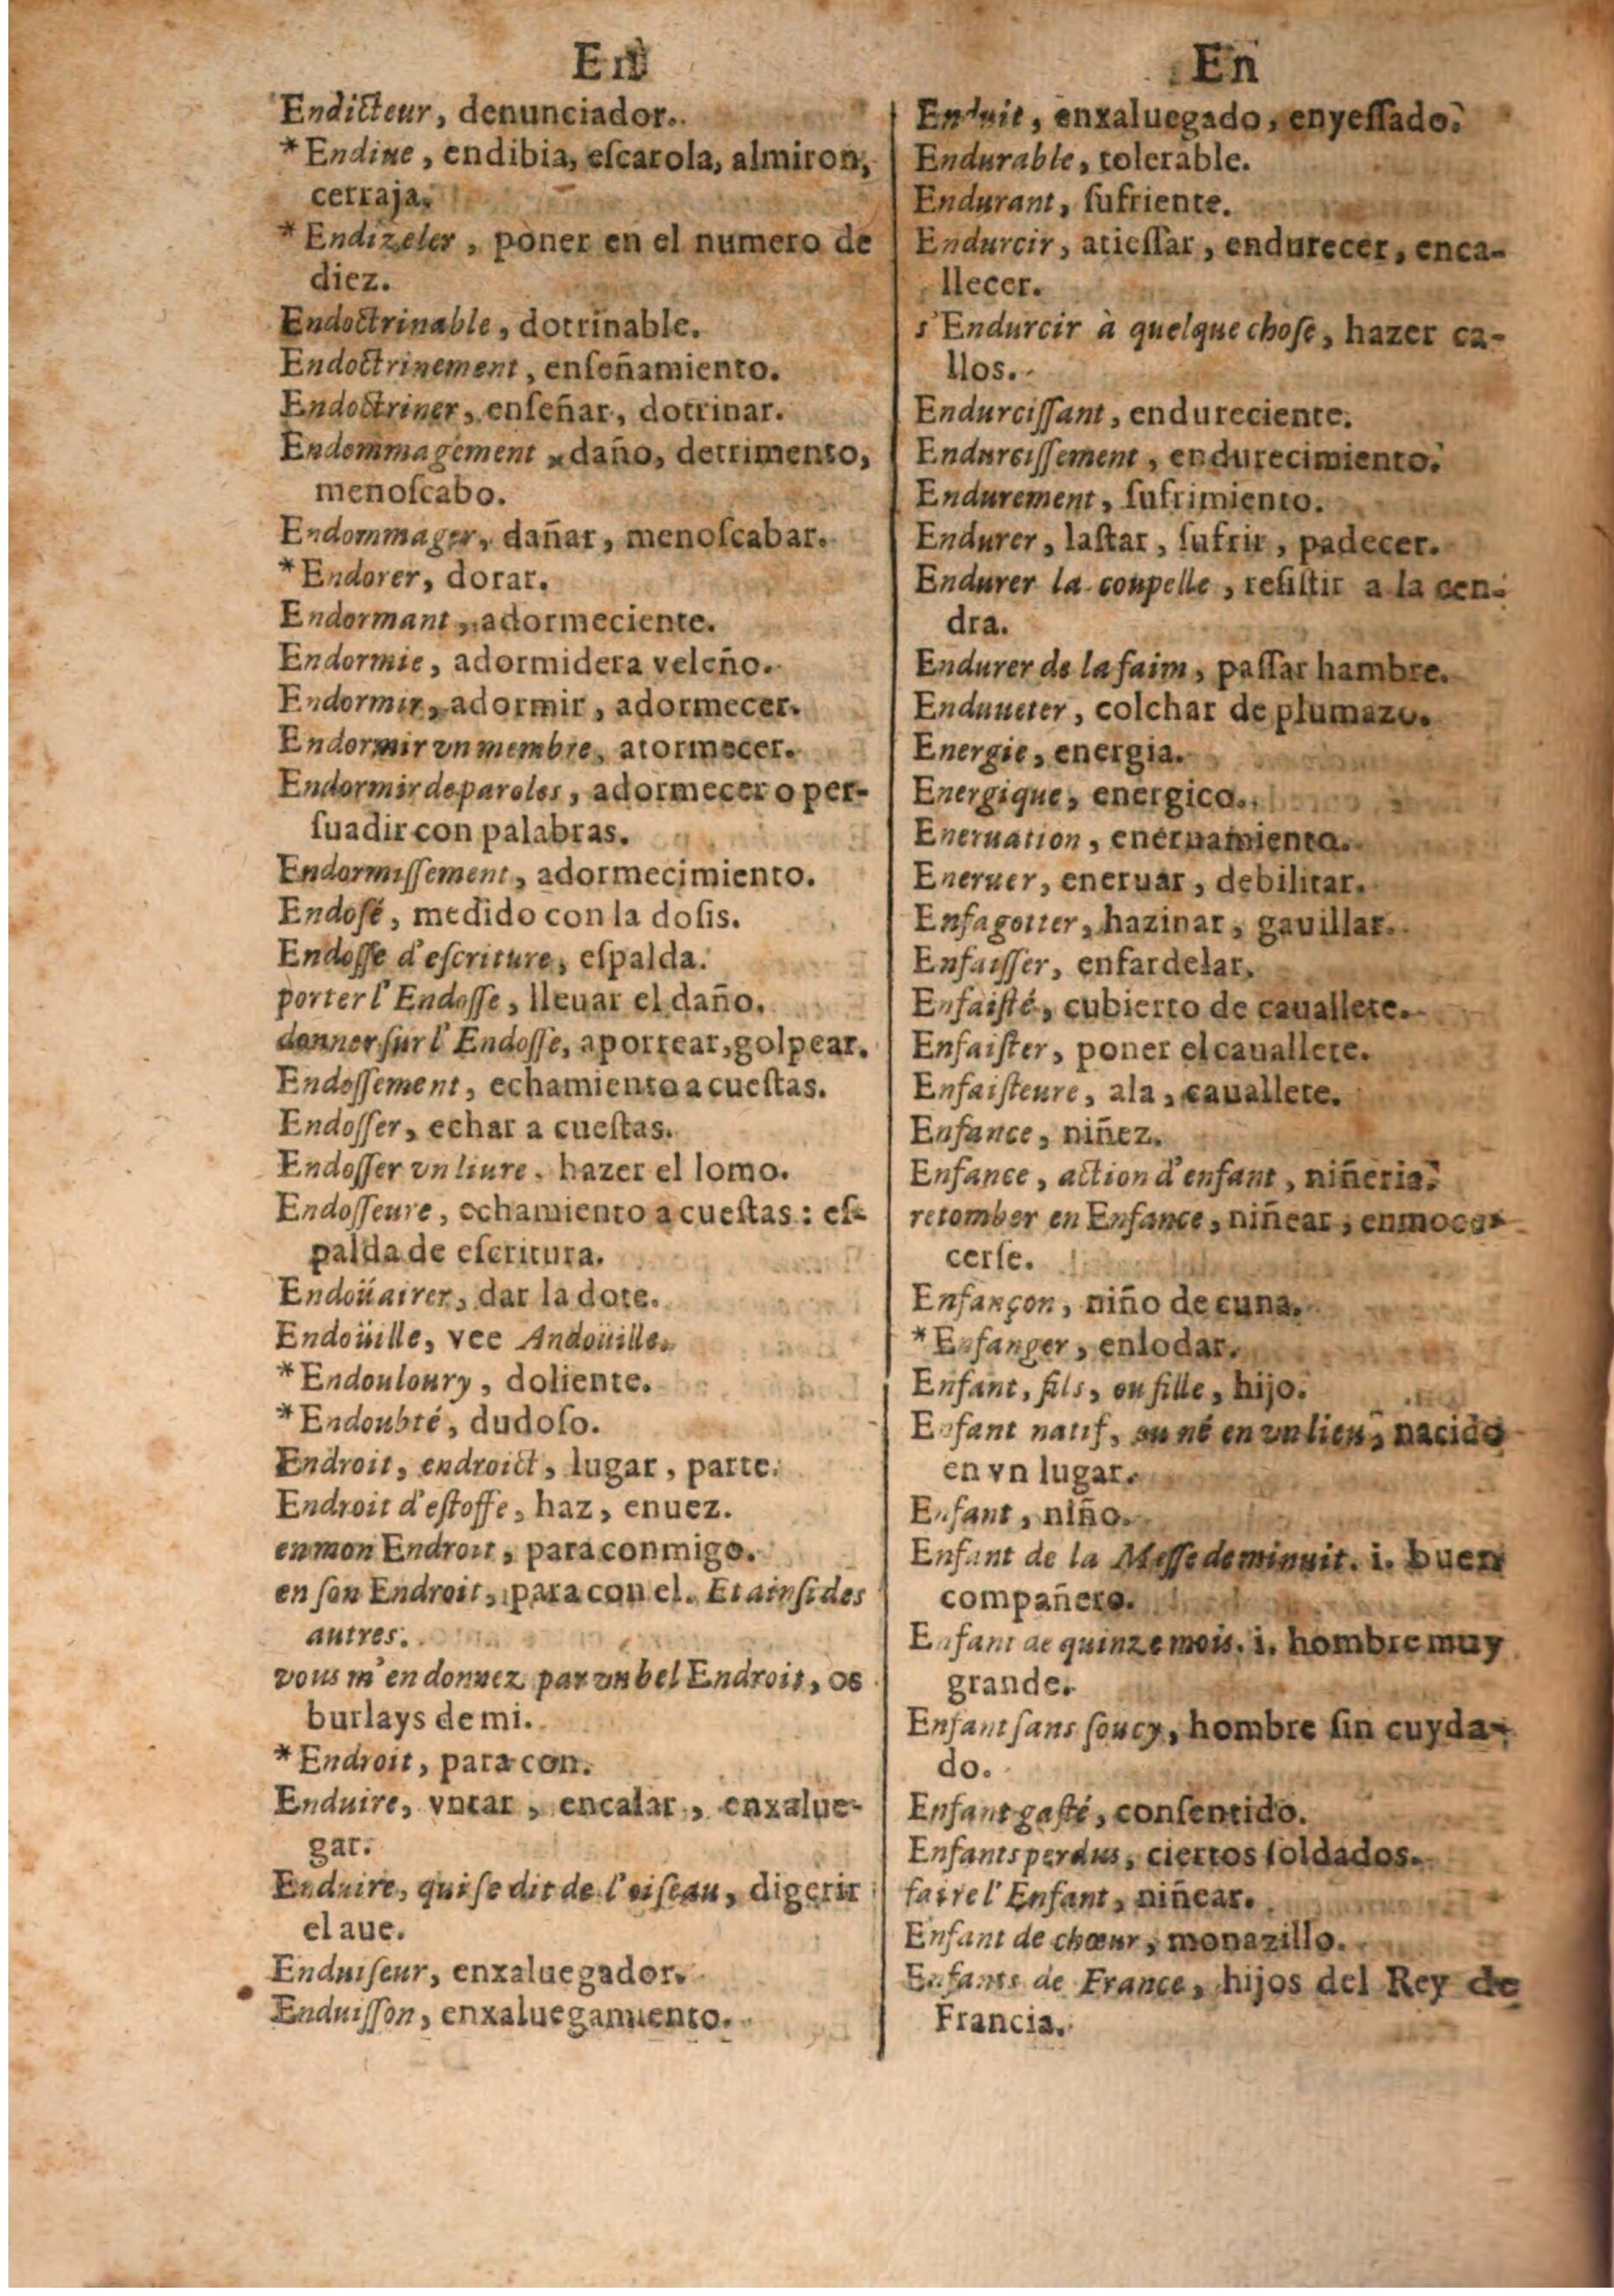 En
Endicteur, denunciador.
*Endiue, endibia, eſcarola, almiron,
cerraja.
*Endizeler, poner en el numero de
diez.
Endoctrinable, dotrinable.
Endoctrinement, enſeñamiento.
Endoctriner, enſeñar, dotrinar.
Endommagement, daño, detrimento,
menoſcabo.
Endommager, dañar, menoſcabar.
*Endorer, dorar.
Endormant, adormeciente.
Endormie, adormidera veleño.
Endormir, adormir, adormecer.
Endormir vn membre, atormecer.
Endormir de paroles, adormecer o per-
ſuadir con palabras.
Endormiſſement, adormecimiento.
Endoſé, medido con la doſis.
Endoſſe d'eſcriture, eſpalda.
porter l'Endoſſe, lleuar el daño.
donner ſur l'Endoſſe, aporrear, golpear.
Endoſſement, echamiento a cueſtas.
Endoſſer, echar a cueſtas.
Endoſſer vn liure, hazer el lomo.
Endoſſeure, echamiento a cueſtas: eſ-
palda de eſcritura.
Endoüairer, dar la dote.
Endoüille, vee Andoüille.
*Endouloury, doliente.
*Endoubté, dudoſo.
Endroit, endroict, lugar, parte.
Endroit d'eſtoffe, haz, enuez.
en mon Endroit, para conmigo.
en ſon Endroit, para con el. Et ainſi des
autres.
vous m'en donnez par vn bel Endroit, os
burlays de mi.
*Endroit, para con.
Enduire, vntar, encalar, enxalue-
gar.
Enduire, qui ſe dit de l'oiſeau, digerir
el aue.
Enduiſeur, enxaluegador.
Enduiſſon, enxaluegamiento.
En
Enduit, enxaluegado, enyeſſado.
Endurable, tolerable.
Endurant, ſufriente.
Endurcir, atieſſar, endurecer, enca-
llecer.
s'Endurcir à quelque choſe, hazer ca-
llos.
Endurciſſant, endureciente.
Endurciſſement, endurecimiento.
Endurement, ſufrimiento.
Endurer, laſtar, ſufrir, padecer.
Endurer la coupelle, reſiſtir a la cen-
dra.
Endurer de la faim, paſſar hambre.
Enduueter, colchar de plumazo.
Energie, energia.
Energique, energico.
Eneruation, eneruamiento.
Eneruer, eneruar, debilitar.
Enfagotter, hazinar, gauillar.
Enfaiſſer, enfardelar.
Enfaiſté, cubierto de cauallete.
Enfaiſter, poner el cauallete.
Enfaiſteure, ala, cauallete.
Enfance, niñez.
Enfance, action d'enfant, niñeria.
retomber en Enfance, niñear, enmoce-
cerſe.
Enfançon, niño de cuna.
*Enfanger, enlodar.
Enfant, fils, ou fille, hijo.
Enfant natif, ou né en vn lieu, nacido
en vn lugar.
Enfant, niño.
Enfant de la Meſſe de minuit. i. buen
compañero.
Enfant de quinze mois. i. hombre muy
grande.
Enfant ſans ſoucy, hombre ſin cuyda-
do.
Enfant gaſté, conſentido.
Enfants perdus, ciertos ſoldados.
faire l'Enfant, niñear.
Enfant de chœur, monazillo.
Enfants de France, hijos del Rey de
Francia.